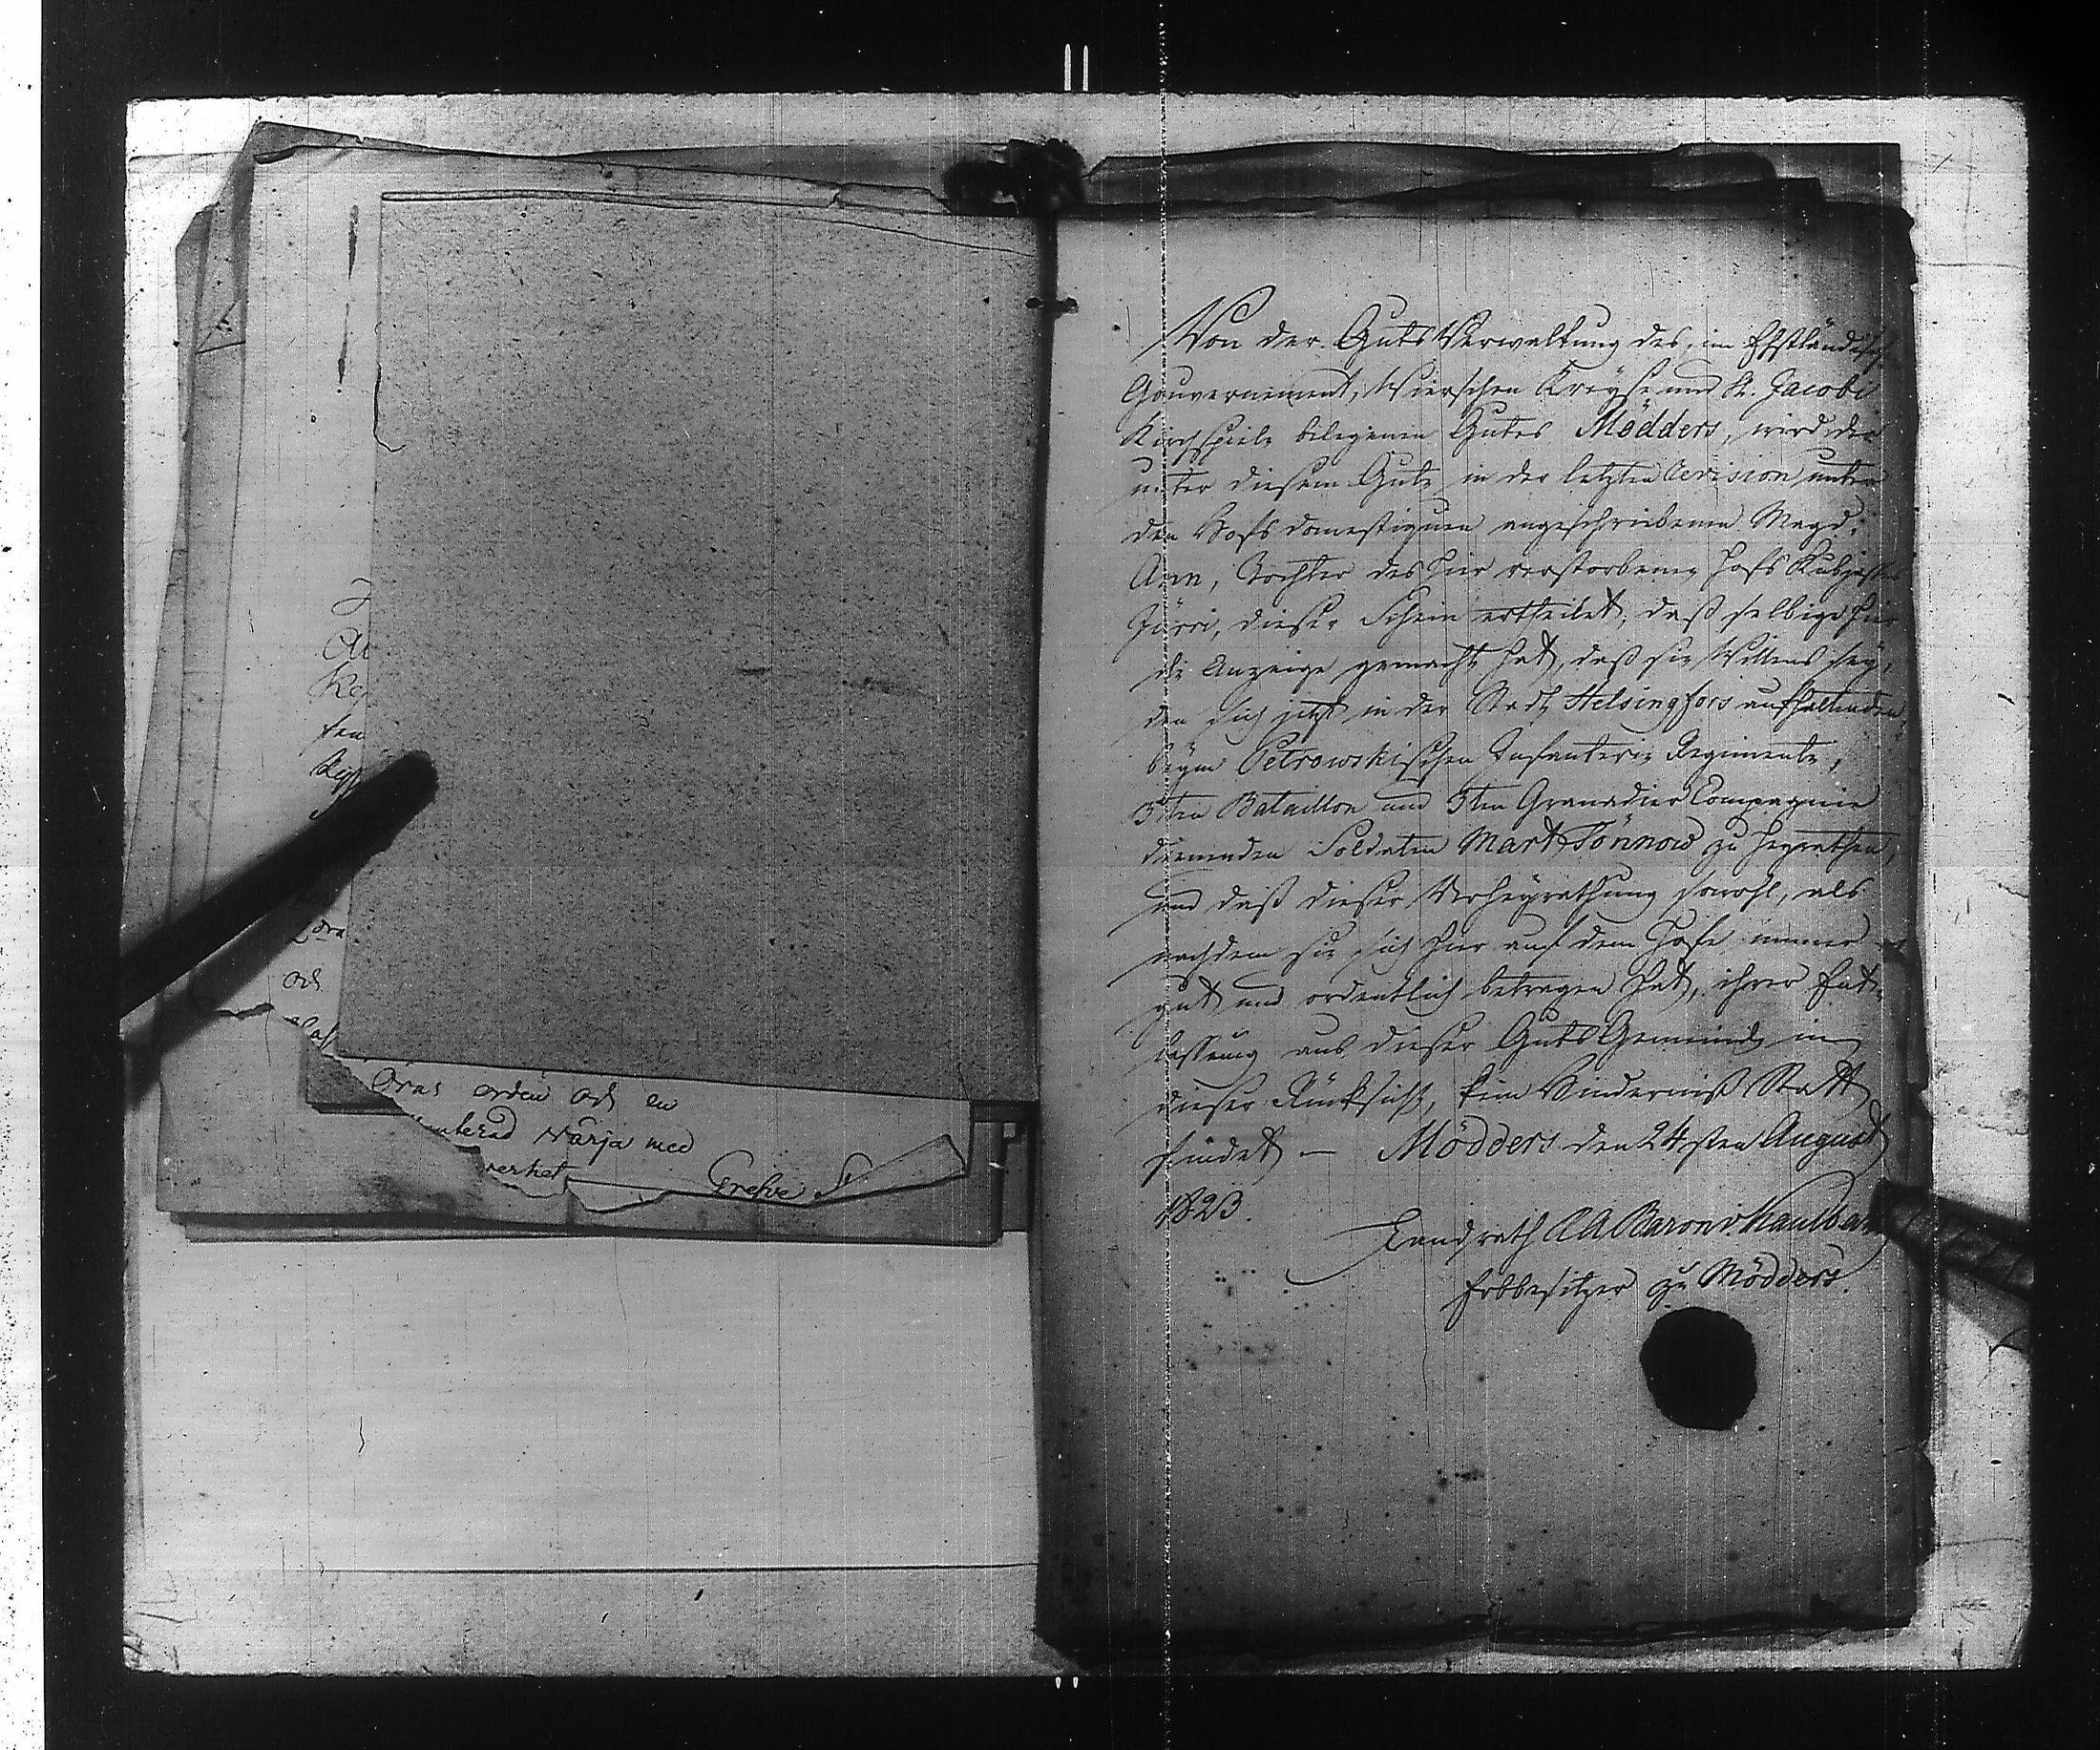 Oras orden och en
Wärja med
verket
Grefve
Von der Guts Verwaltung des, im Ehstländische
Gouvernement, Wierschen Kreyse und St. Jacobi
Kirchspiele belegenen Gutes Mödders, wird der
unter diesem Gute in der letzten Revision unter
den Hofsdomestiquen angeschriebenen Magd:
Ann, Tochter des hier verstorbenen Hofs Kubjas
Jürri, dieser Schein ertheilet, daß selbige hier
die Anzeige gemacht hat, daß sie Willens sey,
den sich jetzt in der Stadt Helsingfors aufhaltenden,
beym Petrowskischen Infanterie Regimente,
3ten Bataillon und 3ten Granadier Compagnie
dienenden Soldaten Mart Tönnow zu heyrathen,
und daß dieser Verheyrathung sowohl, als
nachdem sie sich hier auf dem Hofe immer
gut und ordentlich betragen hat, ihrer Ent-
lassung aus dieser Guts Gemeinde in
dieser Rücksicht, kein Hinderniß Statt
findet — Mödders den 24sten August
1823.
Landrath Baron v. Kaulbar
Erbbesitzer zu Mödders.